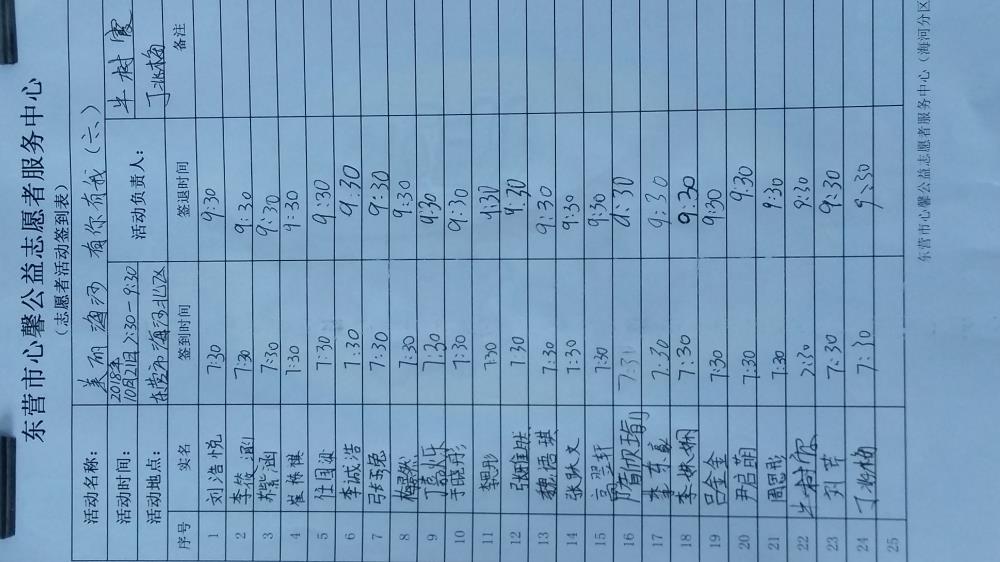 东营市心馨公益志愿者服务中心
（志愿者活动签到表）
活动名称： 美丽海河 有你有我（六）
活动时间： 2018年10月21日7:30-9:30 活动负责人： 牛树霞
活动地点： 东营市海河北区 丁兆梅
序号 实名 签到时间 签退时间 备注
1 刘浩悦 7:30 9:30
2 李筱涵 7:30 9:30
3 7:30 9:30
4 崔栋祺 7:30 9:30
5 任国梁 7:30 9:30
6 李诚浩 7:30 9:30
7 7:30 9:30
8 7:30 9:30
9 7:30 9:30
10 于晓彤 7:30 9:30
11 7:30 9:30
12 7:30 9:30
13 魏语琪 7:30 9:30
14 张耿文 7:30 9:30
15 7:30 9:30
16 7:30 9:30
17 李东 7:30 9:30
18 7:30 9:30
19 吕金金 7:30 9:30
20 尹启萌 7:30 9:30
21 周思彤 7:30 9:30
22 7:30 9:30
23 刘芹 7:30 9:30
24 7:30 9:30
25
东营市心馨公益志愿者服务中心（海河分区